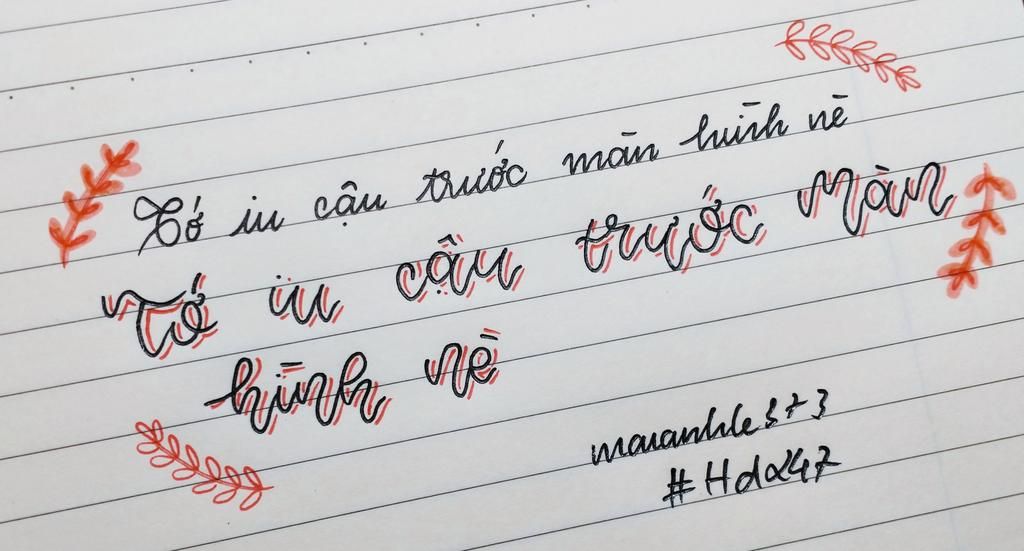 Tớ iu cậu trước màn hình nè
Tớ iu cậu trước màn
hình nè
maianhle373
#Hda247